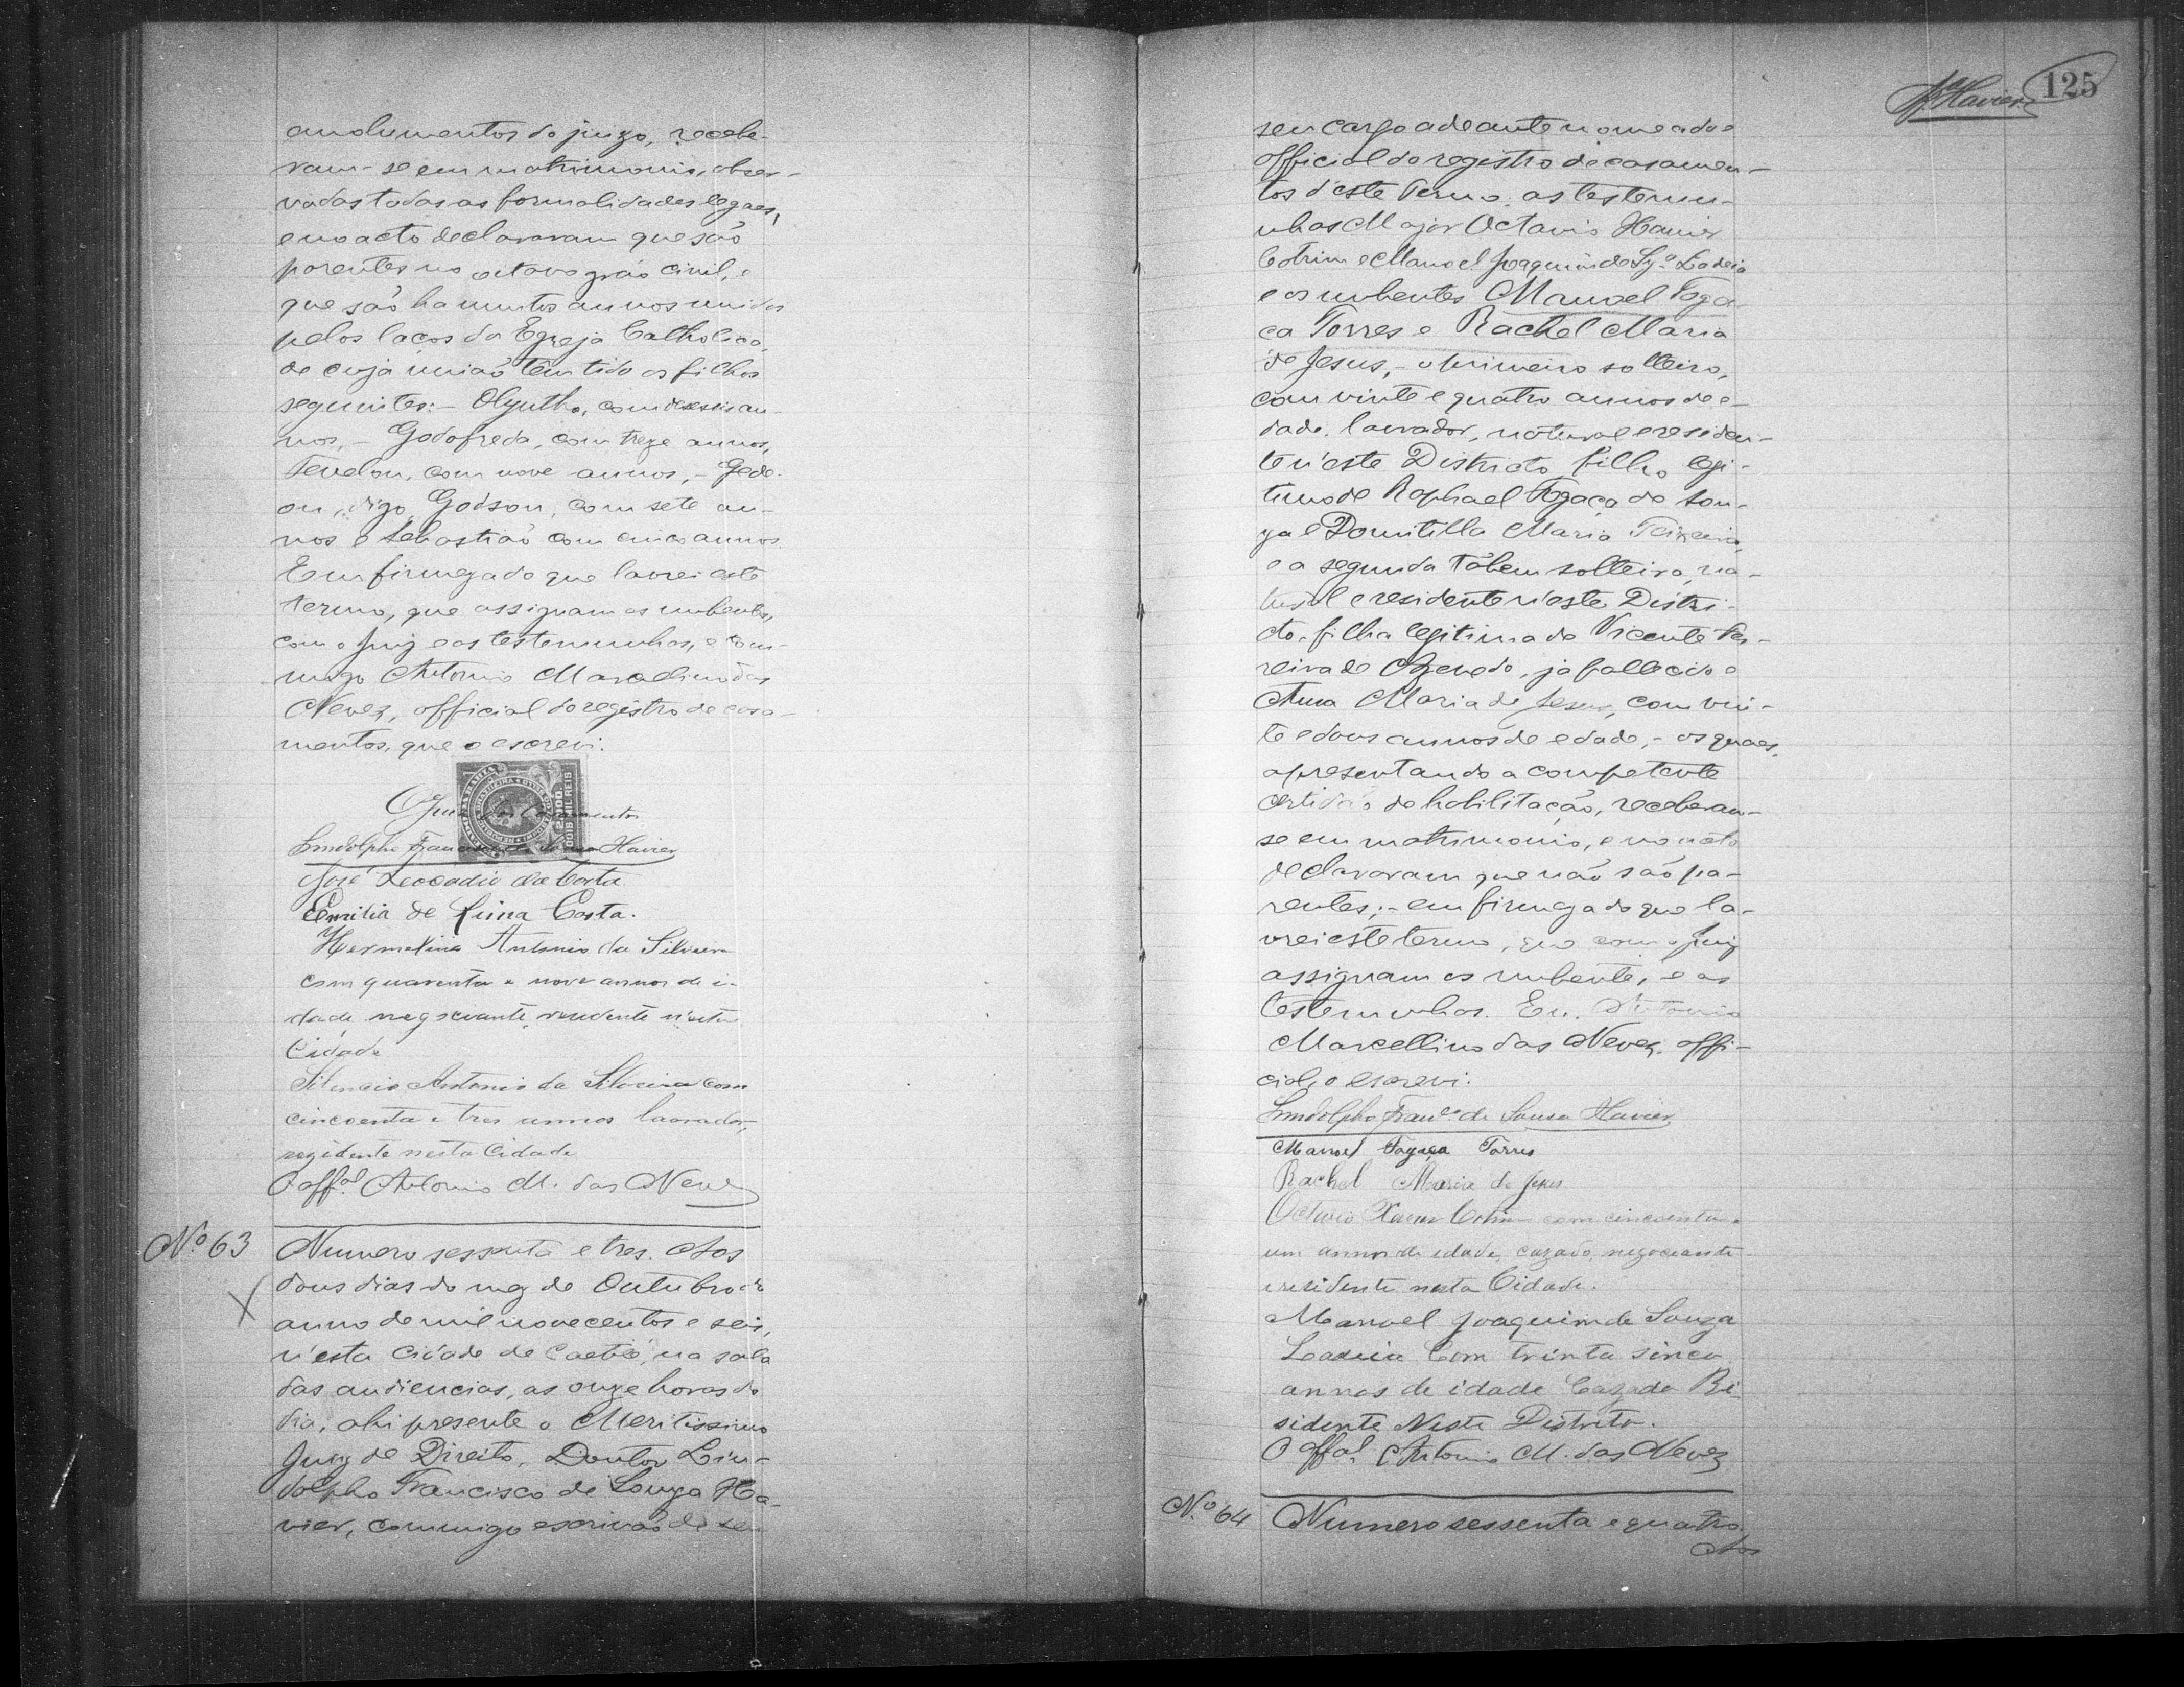 emolumentos do juizo, recebe-
ram-se em matrimonio, obser-
vadas todas as formalidades legaes,
e no acto declararam que são
parentes no oitavo gráo civil, e
que são ha muitos annos unidos
pelos laços da Egreja Catholica,
de cuja união têm tido os filhos
seguintes:- Olyntho, com deseseis an-
nos,- Godofredo, com treze annos,
com nove annos,- Gede-
on, digo, Godson, com sete an-
nos e Sebastião com cinco annos
E em firmeza do que lavrei este
termo, que assignam os nubentes,
com o Juiz e as testemunhas, e com-
migo Antonio Marcellino das
Neves, official do registro de casa-
mentos, que o escrevi.
O Juiz dos Casamentos
Lindolpho Francisco de Sousa Xavier
José Leocadio da Costa
Emilia de Lima Costa.
Antonio da Silveira
com quarenta e nove annos de i-
dade, negociante, residente n'esta
Cidade
Antonio da Silveira com
cincoenta e tres annos lavrador,
rezidente nesta Cidade
O offal. Antonio M. das Neves
No. 63
Numero sessenta e tres. Aos
dous dias do mez de Outubro do
anno de mil novecentos e seis,
n'esta Cidade de Caetité, na sala
das audiencias, as onze horas do
dia, ahi presente o Meritissimo
Juiz de Direito, Doutor Lin-
dolpho Francisco de Souza Xa-
vier, commigo escrivão de seu
Xavier 125
seu cargo adeante nomeado e
official do registro de casamen-
tos d'este Termo, as testemu-
nhas Major Octavio Xavier
Cotrim e Manoel Joaquim de Sza. Ladeia
e os nubentes Manoel Foga-
ça Torres e Rachel Maria
de Jesus,- o primeiro solteiro,
com vinte e quatro annos de e-
dade, lavrador, natural e residen-
te n'este Districto, filho legi-
timo de Raphael Fogaça de Sou-
za e Domitilla Maria Teixeira,
e a segunda tãbem solteira, na-
tural e residente n'este Distri-
cto, filha legitima de Vicente Pe-
reira de Azevedo, já fallecido e
Anna Maria de Jesus, com vin-
te e dous annos de edade,- os quaes,
apresentando a competente
certidão de habilitação, receberam-
se em matrimonio, e no acto
declararam que não são pa-
rentes;- em firmeza do que la-
vrei este termo, que com o Juiz
assignam os nubente, e as
testemunhas. Eu, Antonio
Marcellino das Neves, offi-
cial, o escrevi.
Lindolpho Franco. de Sousa Xavier
Manoel Fogaça Torres
Rachel Maria de Jesus
Octavio Xavier Cotrim com cincoenta e
um annos de idade, cazado, negociante
e residente nesta Cidade.
Manoel Joaquim de Souza
Ladeia Com trinta sinco
annos de idade Cazado Re-
sidente Neste Distrito.
O offal. Antonio M. das Neves
No. 64
Numero sessenta e quatro
Aos